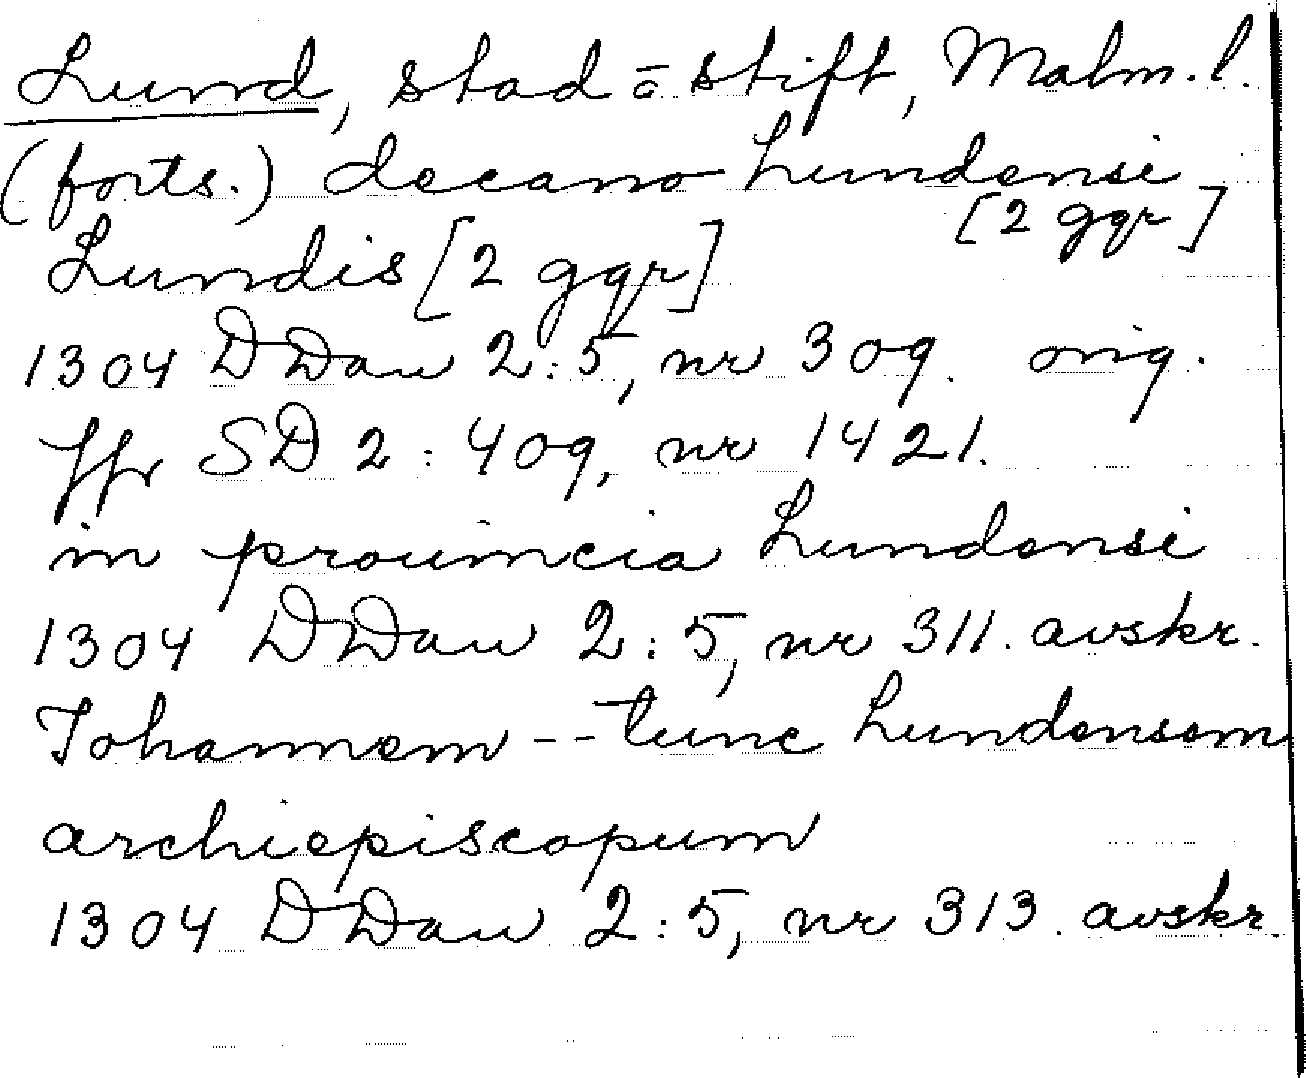 Lund, stad o. stift, Malm. l.
(forts.) decano Lundensi
[2 ggr]
Lundis [2 ggr]
1304 DDan 2:5, nr 309. orig.
Jfr SD 2:409, nr 1421.
in prouincia Lundensi
1304 DDan 2:5, nr 311. avskr.
Johannem -- tunc Lundensem
archiepiscopum
1304 DDan 2:5, nr 313. avskr.